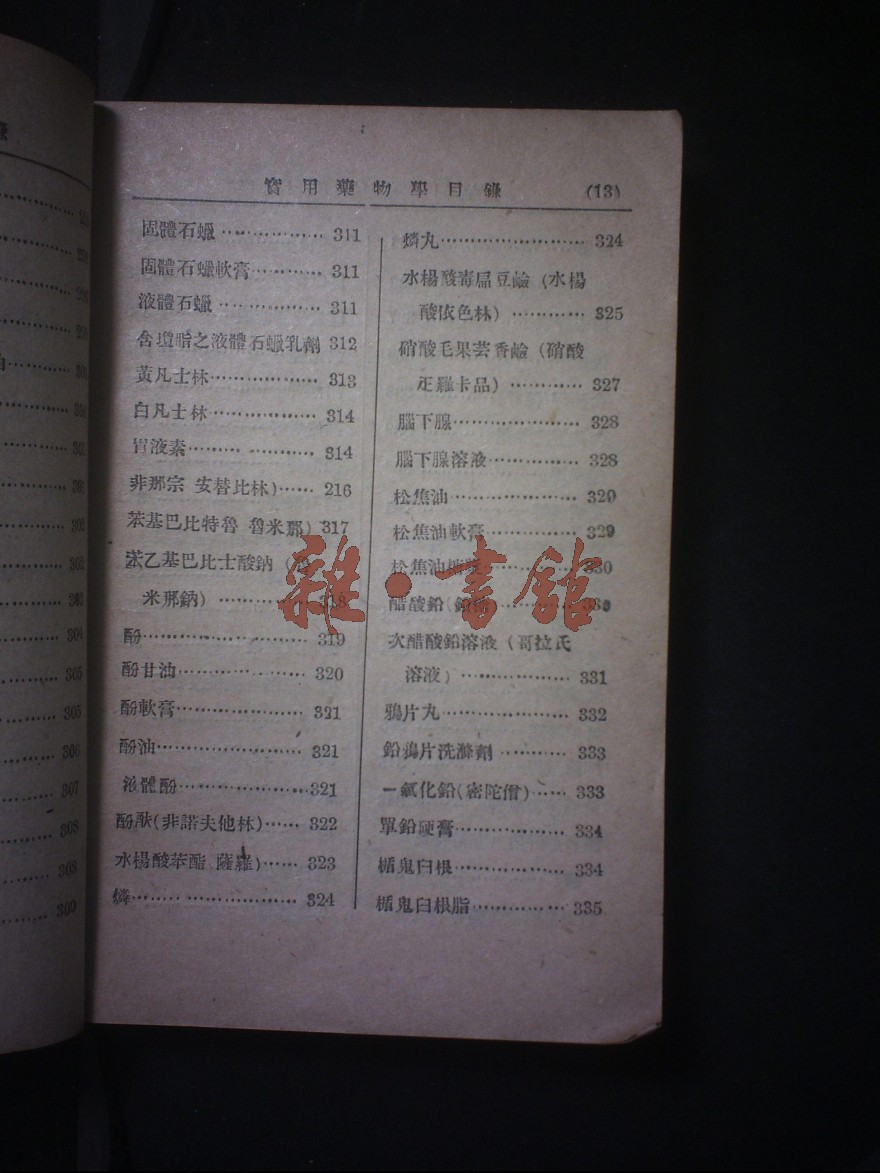 實用藥物學目錄 (13)
固體石蠟 ………………… 311
固體石蠟軟膏………… 311
液體石蠟 ……………… 311
含瓊脂之液體石蠟乳劑 312
黃凡士林……………… 313
白凡士林……………… 314
胃液素………………… 314
非那宗 安替比林)…… 216
苯基巴比特魯 魯米那) 317
苯乙基巴比士酸鈉 (
米那鈉) …………… 318
酚……………………… 319
酚甘油………………… 320
酚軟膏………………… 321
酚油…………………… 321
液體酚…………………321
酚酞(非諾夫他林)…… 322
水楊酸苯酯 薩羅)…… 323
燐……………………… 324
燐丸…………………… 324
水楊酸毒扁豆鹼 (水楊
酸依色林) ………… 325
硝酸毛果芸香鹼 (硝酸
疋羅卡品) ………… 327
腦下腺………………… 328
腦下腺溶液…………… 328
松焦油………………… 329
松焦油軟膏…………… 329
松焦油 330
醋酸鉛(鉛 330
次醋酸鉛溶液 (哥拉氏
溶液) ……………… 331
鴉片丸………………… 332
鉛鴉片洗滌劑 ……… 333
一氧化鉛(密陀僧)…… 333
單鉛硬膏……………… 334
楯鬼臼根……………… 334
楯鬼臼根脂…………… 335
309
308
308
307
306
305
305
304
303
302
雜·書館